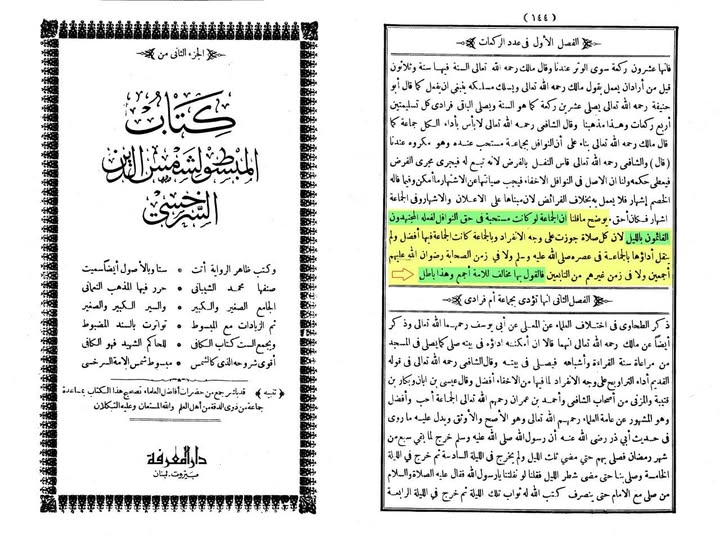 الجزء الثانى من
كتاب
المبسوط لشمس الدين
السرخسي
وكتب ظاهر الرواية أتت * ستا وبالأصول أيضا سميت
صنفها محمد الشيبانى * حرر فيها المذهب النعمانى
الجامع الصغير والكبير * والسير الكبير والصغير
ثم الزيادات مع المبسوط * تواترت بالسند المضبوط
ويجمع الست كتاب الكافى * للحاكم الشهيد فهو الكافى
أقوى شروحه الذى كالشمس * مبسوط شمس الأمة السرخسى
﴿تنبيه﴾ قد باشر جمع من حضرات أفاضل العلماء تصحيح هذا الكتاب بمساعدة
جماعة من ذوى الدقة من أهل العلم والله المستعان وعليه التكلان
دار المعرفة
بيروت. لبنان
(١٤٤)
الفصل الأول فى عدد الركعات
فانها عشرون ركعة سوى الوتر عندنا وقال مالك رحمه الله تعالى السنة فيها ستة وثلاثون
قيل من أراد أن يعمل بقول مالك رحمه الله تعالى ويسلك مسلكه ينبغى أن يفعل كما قال أبو
حنيفة رحمه الله تعالى يصلى عشرين ركعة كما هو السنة ويصلى الباقى فرادى كل تسليمتين
أربع ركعات وهذا مذهبنا وقال الشافعى رحمه الله تعالى لا بأس بأداء الكل جماعة كما
قال مالك رحمه الله تعالى بناء على أن النوافل بجماعة مستحب عنده وهو مكروه عندنا
(قال) والشافعى رحمه الله تعالى قاس النفل بالفرض لأنه تبع له فيجرى مجرى الفرض
فيعطى حكمه ولنا ان الاصل فى النوافل الاخفاء فيجب صيانتها عن الاشتهار ما أمكن وفيما قاله
الخصم إشهار فلا يعمل به بخلاف الفرائض لان مبناها على الاعلان والاشهار وفى الجماعة
اشهار فكان أحق. يوضح ما قلنا ان الجماعة لو كانت مستحبة فى حق النوافل لفعله المجتهدون
القائمون بالليل لان كل صلاة جوزت على وجه الانفراد وبالجماعة كانت الجماعة فيها أفضل ولم
ينقل أداؤها بالجماعة فى عصره صلى الله عليه وسلم ولا فى زمن الصحابة رضوان الله عليهم
أجمعين ولا فى زمن غيرهم من التابعين فالقول بها مخالف للامة أجمع وهذا باطل
الفصل الثانى انها تؤدى بجماعة أم فرادى
ذكر الطحاوى فى اختلاف العلماء عن المعلى عن أبى يوسف رحمهما الله تعالى وذكر
أيضاً عن مالك رحمه الله تعالى انهما قالا ان أمكنه اداؤه فى بيته صلى كما يصلى فى المسجد
من مراعاة سنة القراءة وأشباهه فيصلى فى بيته وقال الشافعى رحمه الله تعالى فى قوله
القديم أداء التراويح على وجه الانفراد لما فيها من الاخفاء أفضل وقال عيسى بن ابان وبكار بن
قتيبة والمزنى من أصحاب الشافعى وأحمد بن عمران رحمهم الله تعالى الجماعة أحب وأفضل
وهو المشهور عن عامة العلماء رحمهم الله تعالى وهو الأصح والأوثق ويدل عليه ما روى
فى حديث أبى ذر رضى الله عنه أن رسول الله صلى الله عليه وسلم خرج لما بقى سبع من
شهر رمضان فصلى بهم حتى مضى ثلث الليل ولم يخرج فى الليلة السادسة ثم خرج فى الليلة
الخامسة وصلى بنا حتى مضى شطر الليل فقلنا لو نفلتنا يا رسول الله فقال عليه الصلاة والسلام
من صلى مع الامام حتى ينصرف كتب الله له ثواب تلك الليلة ثم خرج فى الليلة الرابعة